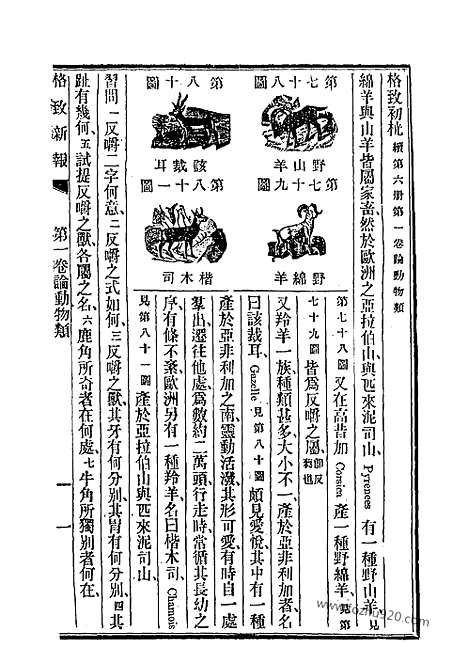 格致初桄 續第六册第一卷論動物類
綿羊與山羊皆屬家畜然於歐洲之亞拉伯山與匹來泥司山 Pyrenees 有一種野山羊見
第七十八圖 又在高昔加 Corsica 產一種野綿羊見第
七十九圖 皆爲反嚼之屬 卽反芻也
又羚羊一族種類甚多大小不一產於亞非利加者名
曰該裁耳 Gazelle 見第八十圖 頗見愛悅其中有一種
產於亞非利加之南靈動活潑其形可愛有時自一處
羣出遷往他處爲數約二萬頭行走時常循其長幼之
序有條不紊歐洲另有一種羚羊名曰楷木司 Chamois
見第八十一圖 產於亞拉伯山與匹來泥司山
第七十八圖
野山羊
第七十九圖
野綿羊
第八十圖
該裁耳
第八十一圖
楷木司
習問 一反嚼二字何意 二反嚼之式如何 三反嚼之獸其牙有何分別其胃有何分別 四其
趾有幾何 五試提反嚼之獸各屬之名 六鹿角所奇者在何處 七牛角所獨別者何在
格致新報
第一卷論動物類
一一
fozhu920.com